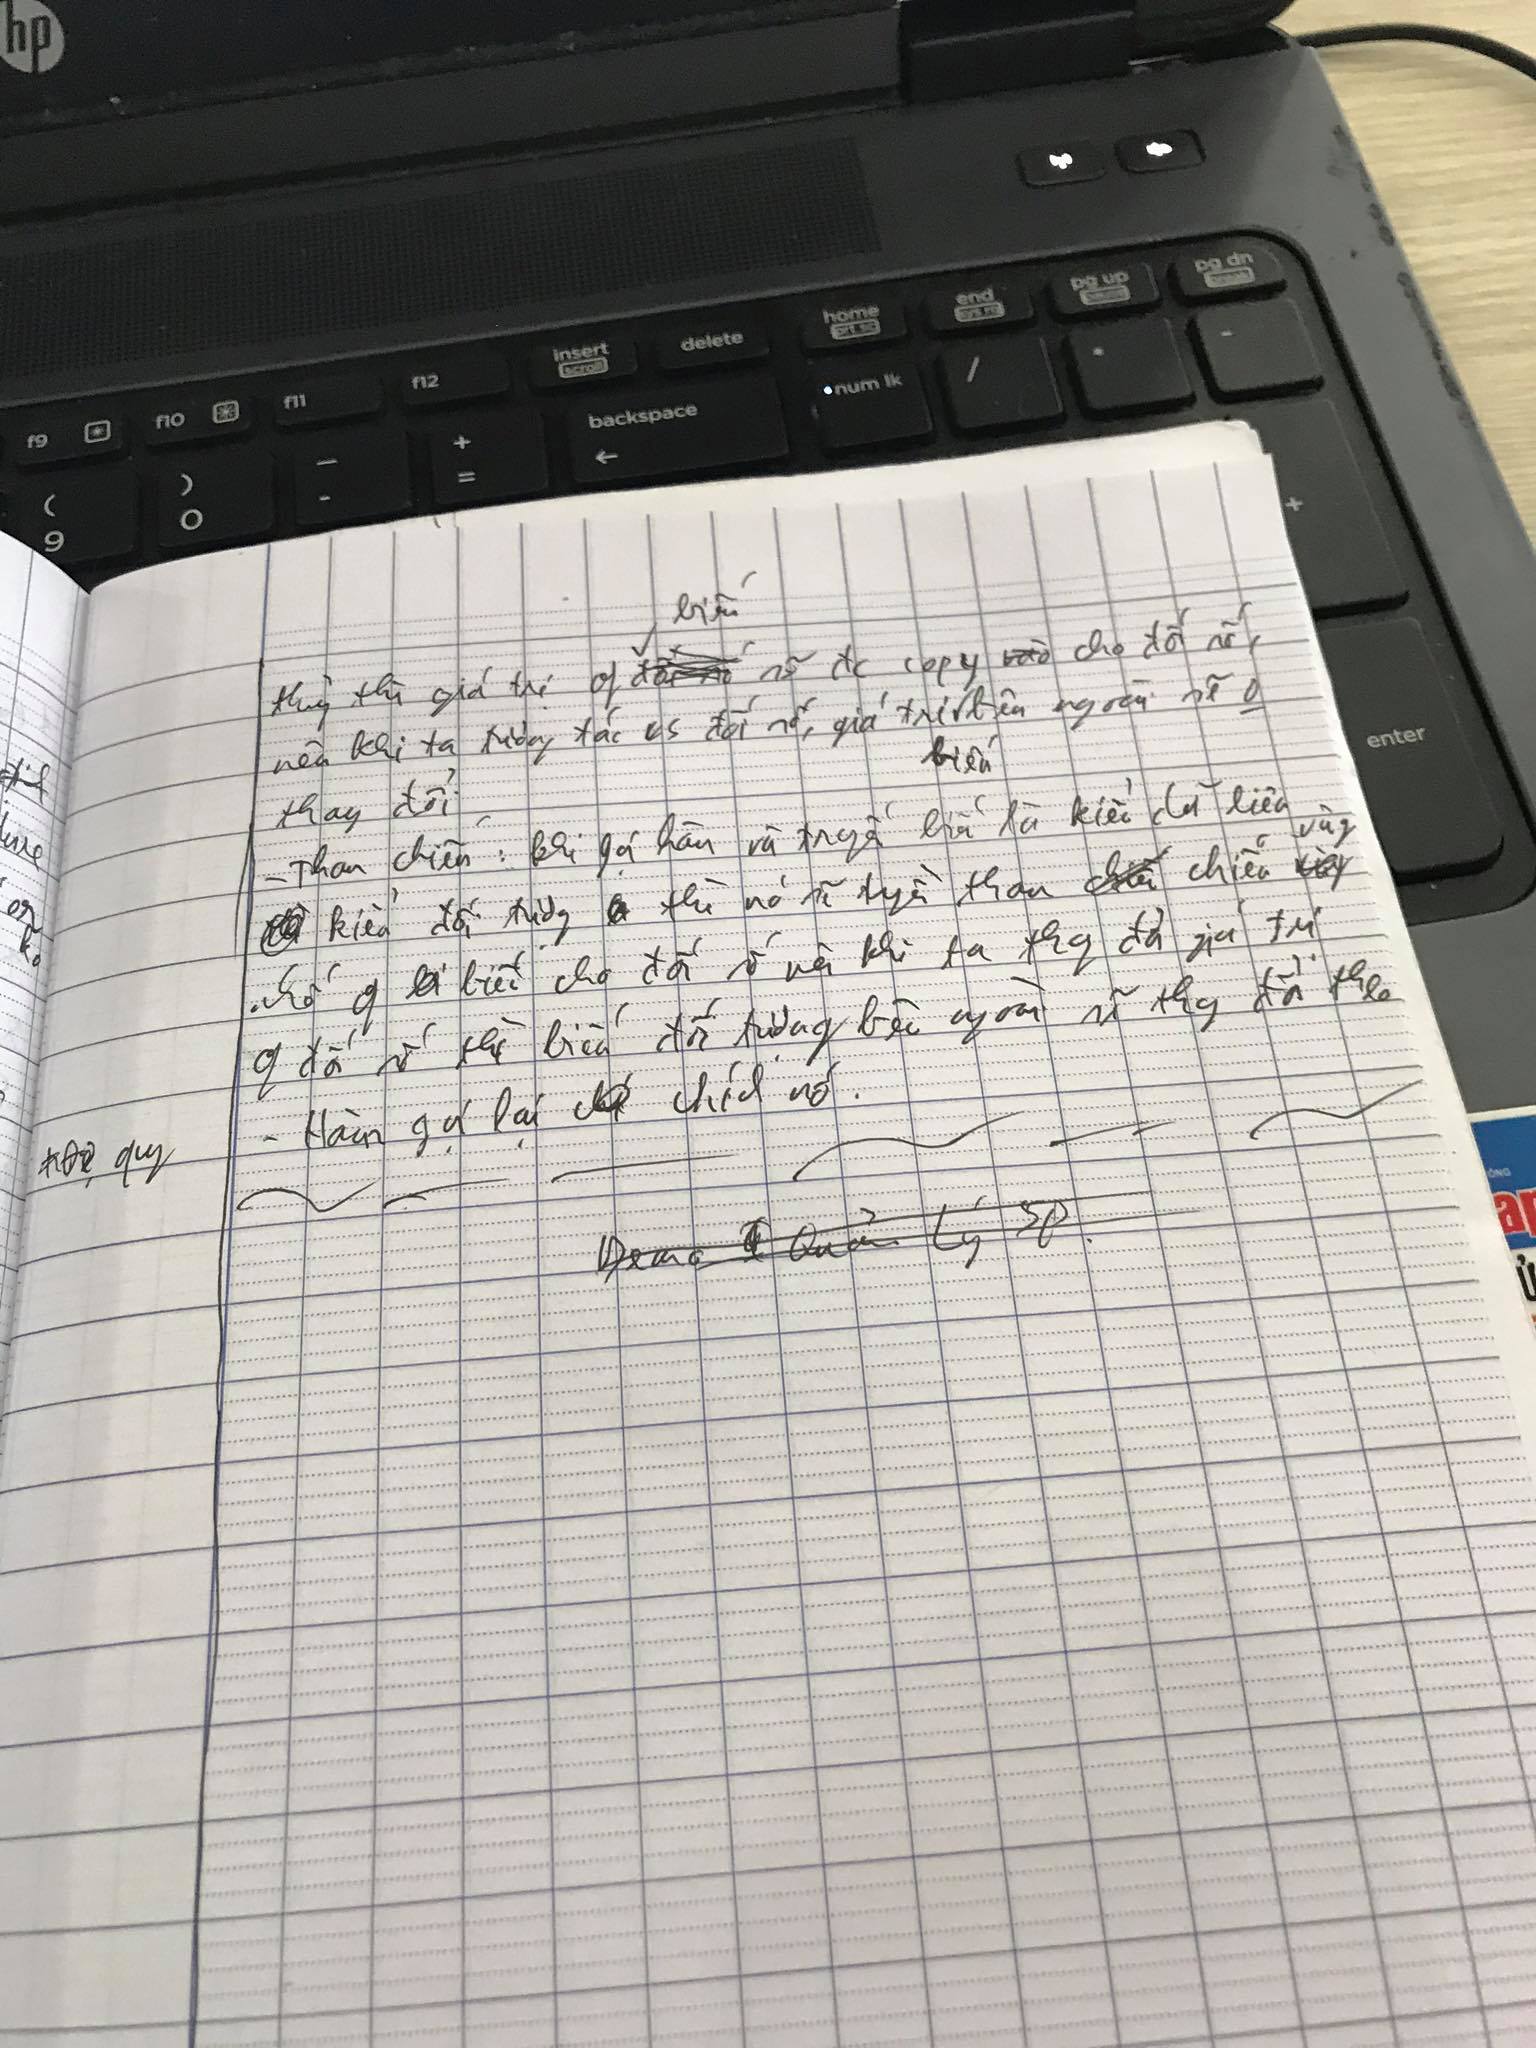 hp
f9
f10
f11
f12
insert
scroll
delete
home
prt sc
end
sys rq
pg up
pause
pg dn
break
( 9
) 0
_ -
+ =
backspace
num lk
/
*
-
+
enter
biến
thuỷ thì giá trị of đối số sẽ đc copy vào cho đối số,
nên khi ta tương tác vs đối số, giá trị bên ngoài sẽ 0
biến
thay đổi
- Tham chiếu: khi gọi hàm và truyền biến là kiểu dữ liệu
kiểu đối tượng thì nó sẽ truyền tham chiếu chiếu vùng
nhớ of biến cho đối số nên khi ta thay đổi giá trị
of đối số thì biến đối tượng bên ngoài sẽ thay đổi theo
* Đệ quy
- Hàm gọi lại chính nó.
Demo Quản Lý SP.